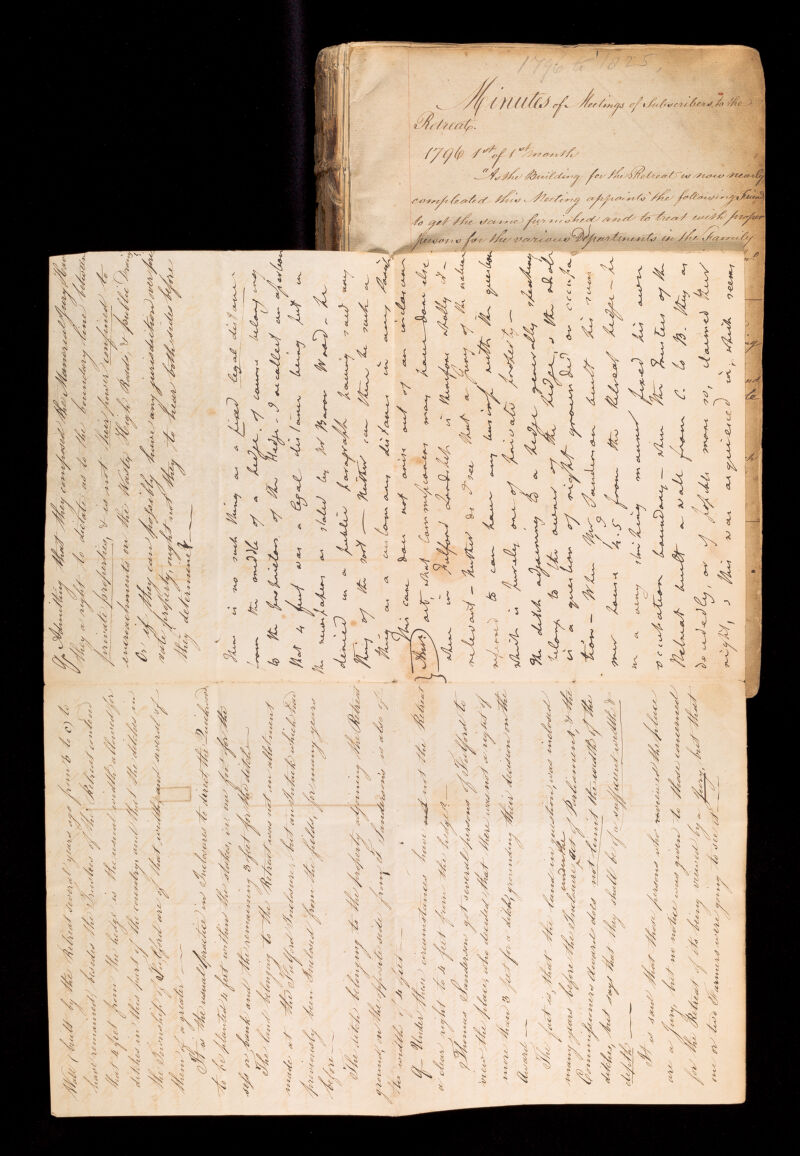 1796 to 1825,
Minutes of Meetings of Subscribers, to the
Retreat.
1796 1st of 1st month
"As the Building for the Retreat is now nearly
compleated this Meeting appoints the following Friends
to get the same furnished and to treat with proper
persons for the various Departments in the Family
Wall (built by the Retreat several years ago from B to C) to
have remained; besides the Trustees of the Retreat contend
that 4 feet from the hedge is the usual width allowed for
ditches in this part of the country; and that the ditches in
the Township of Fulford are of that width, and several of
them of a greater. —
It is the usual practice in Inclosures to direct the Quickwood
to be planted 1 foot within the stakes, one foot for the
soft or bank and the remaining 3 feet for the ditch —
The land belonging to the Retreat was not an allotment
made at the Fulford Inclosure, but an intack which had
previously been Inclosed from the fields, for many years
before —
The ditch belonging to the property adjoining the Retreat
ground, on the opposite side from T. Sanderson's is also of
the width of 4 feet —
Q Under these circumstances have not the Retreat
a clear right to 4 feet from the hedge? —
Thomas Sanderson got several persons of Fulford to
view the place, who decided that there was not a right of
more than 3 feet for a ditch, grounding their decision on the
Award —
The fact is, that the land in question, was inclosed
many years before the Inclosure under the Act of Parliament, & the
Commissioners Award does not limit the width of the
ditches, but says that they shall be of a sufficient width &
depth —
It is said that these persons who viewed the place
are a Jury, but no notice was given to those concerned
for the Retreat of its being viewed by a Jury, but that
one or two Farmers were going to see it —
Q Admitting that they composed the Manerial Jury, have
they a right to dictate as to the boundary line between
private properties, & is not their power confined to
encroachments on the Waste, High Roads, & public Drains
Or if they can possibly have any jurisdiction over private
property, ought not they, to hear both sides before
they determine? —
There is no such thing as a fixed legal distance
from the middle of a hedge of course belonging
to the proprietors of the Hedge. I recollect an assertion
that 4 feet was a legal distance being put in
the newspapers as stated by Mr Baron Wood — he
denied in a public paragraph having said any
thing of the sort — Neither can there be such a
thing as a custom any distance in any
This case does not arise out of an inclosure
Ans act, what Commissioners may have done else
where in Fulford Lordship is therefore wholly ir-
relevant — Neither do I see that a jury of the nature
referred to can have any business with the question
which is purely one of private property —
The ditch adjoining to a hedge generally speaking
belongs to the owner of the hedge, & the whole
is a question of right grounded on occupa
tion — When Mr Sanderson built his sum
mer house 4.5 from the Retreat hedge — he
in a very striking manner fixed his own
occupation boundary — When the Trustees of the
Retreat built a wall from C. to B. they as
decidedly, or if possible more so, claimed their
right, & this was acquiesced in, which seems